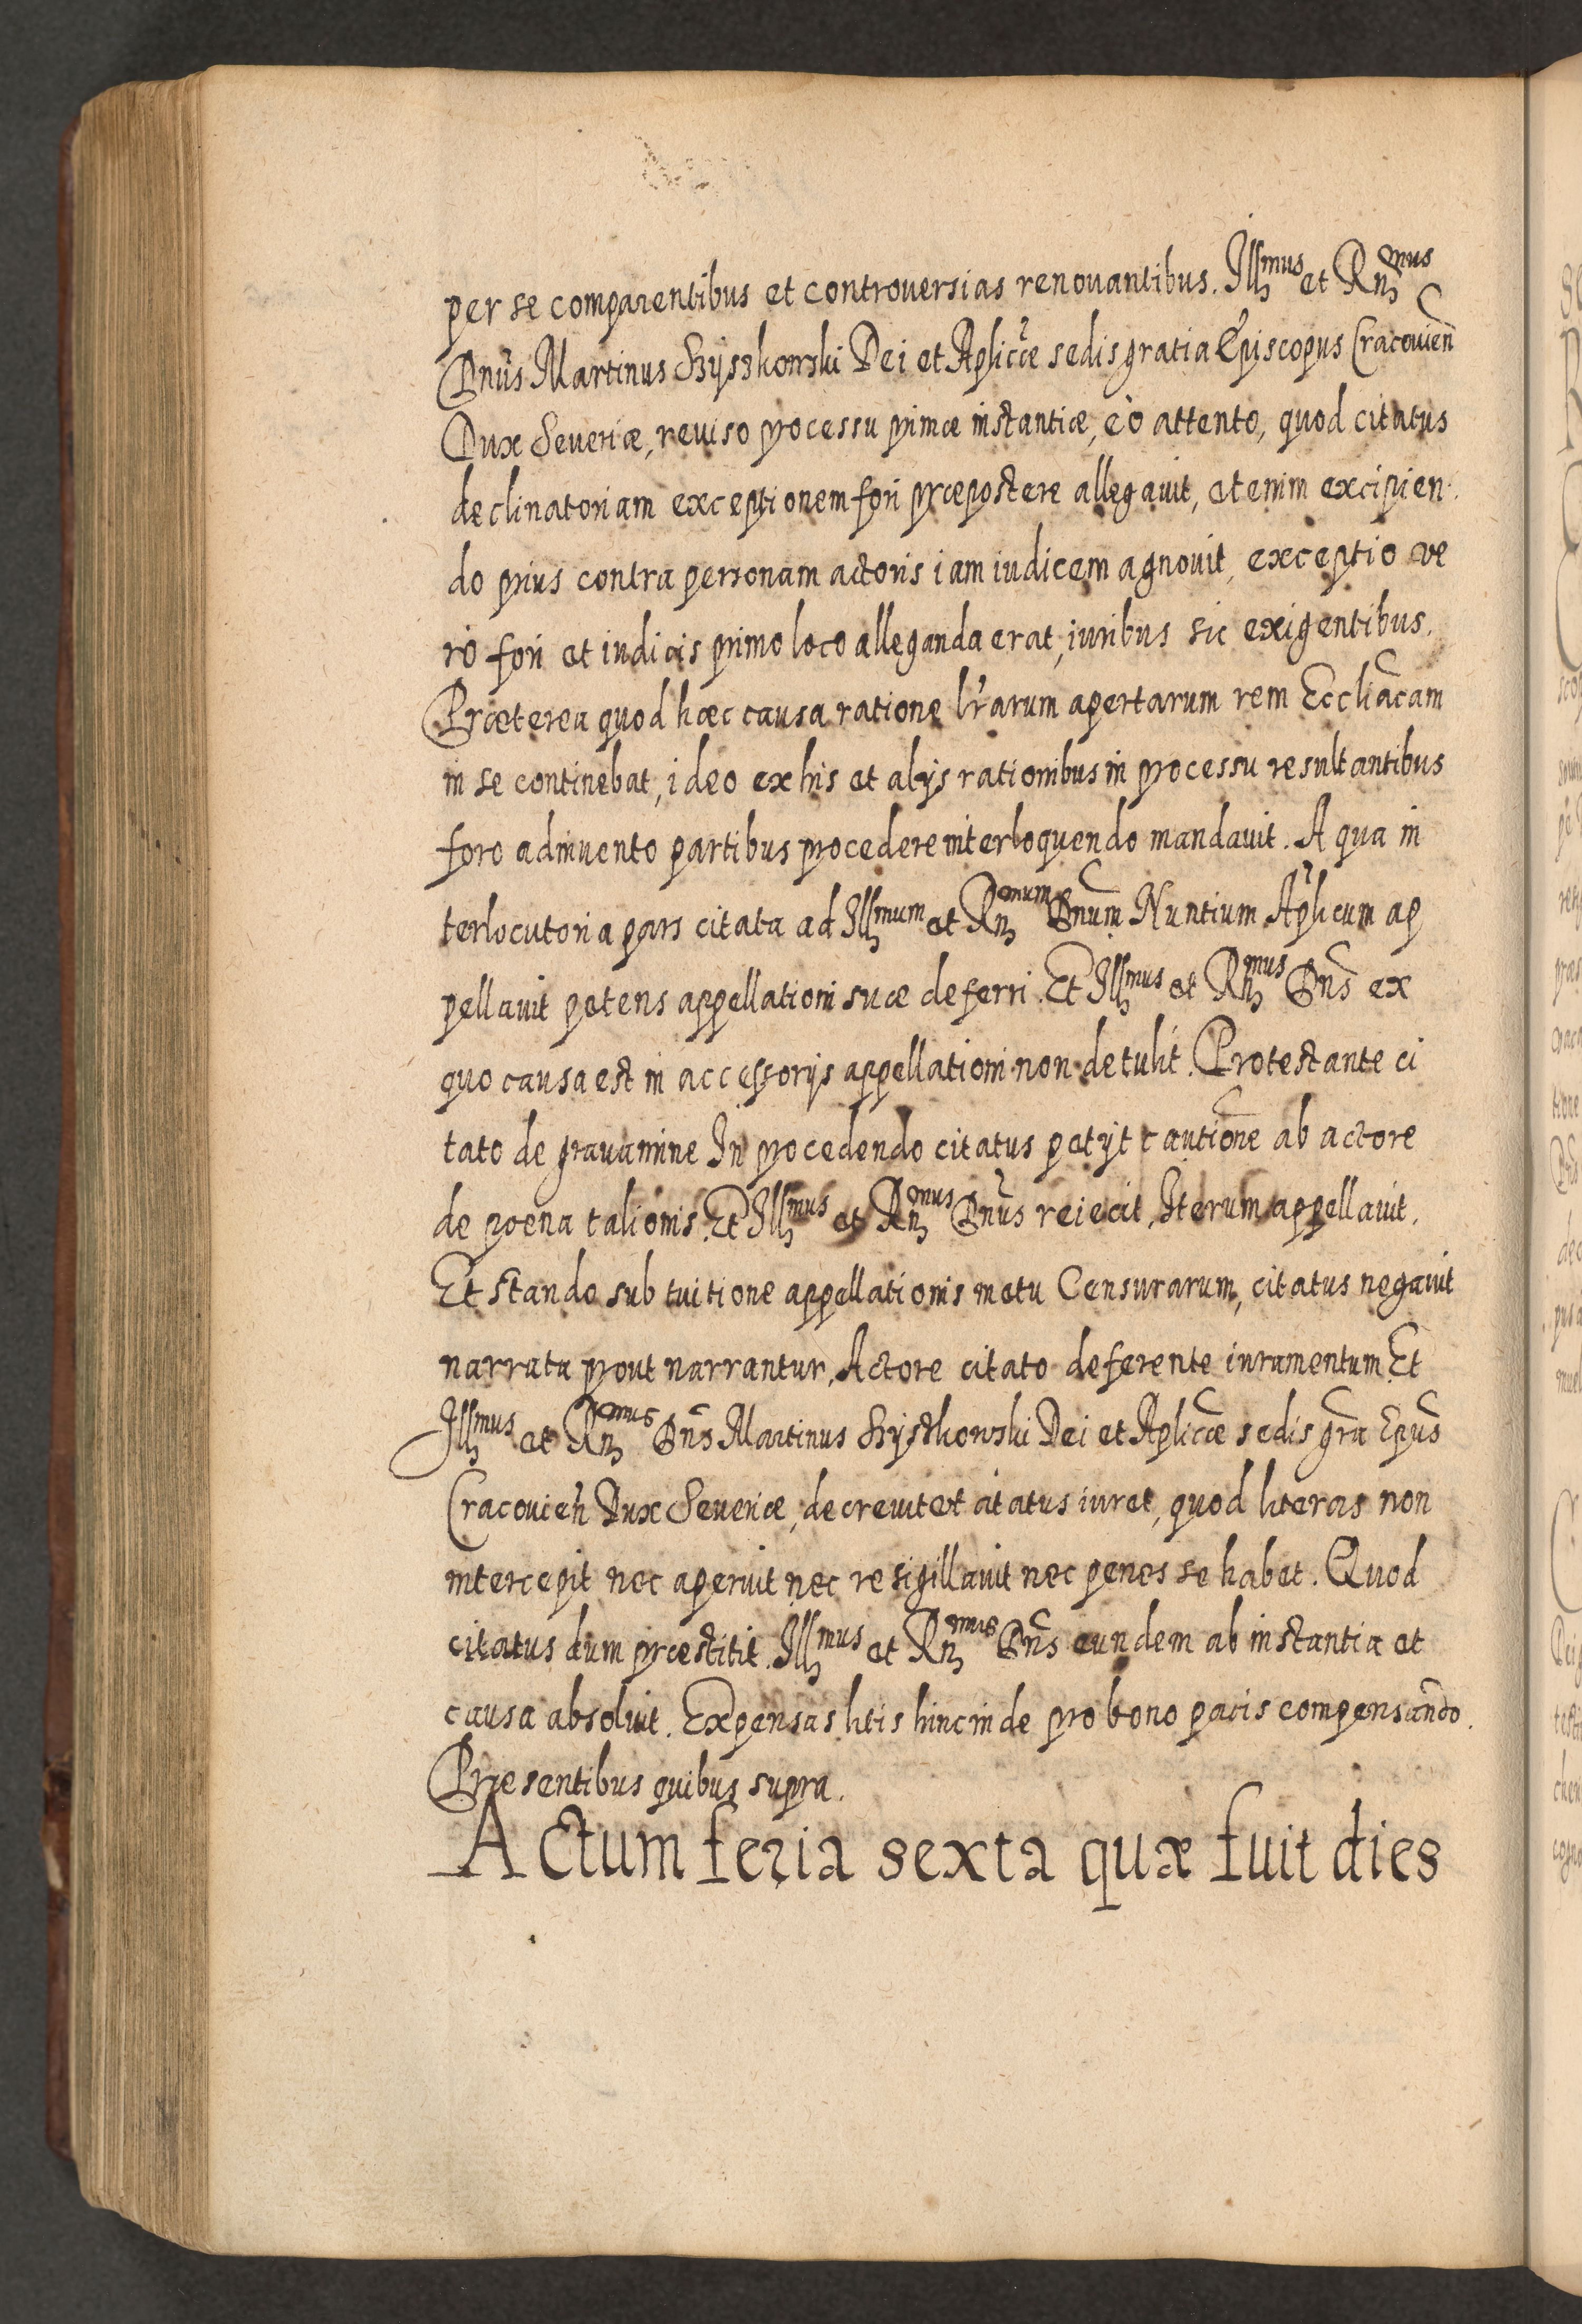 per se comparentibus et controuersias renouantibus. Illmus et Rnmus
Dnus Martinus Szyszkowski Dei et Aplicæ sedis gratia Episcopus Cracouien
Dux Seueriæ, reuiso processu primæ instantiæ, eò attento, quod citatus
declinatoriam exceptionem fori præpostere allegauit, etenim excipien
do prius contra personam actoris iam iudicem agnouit, exceptio ve
rò fori et iudicis primo loco alleganda erat, iuribus sic exigentibus.
Præterea quod hæc causa ratione lrarum apertarum rem Eccliacam
in se continebat, ideo ex his et alijs rationibus in processu resultantibus
foro adinuento partibus procedere interloquendo mandauit. A qua in
terlocutoria pars citata ad Illmum et Rnmum Dnum Nuntium Aplicum ap
pellauit petens appellationi suæ deferri. Et Illmus et Rnmus Dns ex
quo causa est in accessorijs appellationi non detulit. Protestante ci
tato de grauamine In procedendo citatus petijt cautione ab actore
de poena talionis. Et Illmus et Rnmus Dnus reiecit, Iterum appellauit.
Et stando sub tuitione appellationis metu Censurarum, citatus negauit
narrata prout narrantur, Actore citato deferente iuramentum. Et
Illmus et Rnmus Dns Martinus Szyszkowski Dei et Aplicæ sedis gra Epus
Cracouien Dux Seueriæ, decreuit et citatus iuret, quod literas non
intercepit nec aperuit nec resigillauit nec penes se habet. Quod
citatus dum præstitit. Illmus et Rnmus Dns eundem ab instantia et
causa absoluit. Expensas litis hinc inde pro bono pacis compensando.
Præsentibus quibus supra.
Actum feria sexta quæ fuit dies